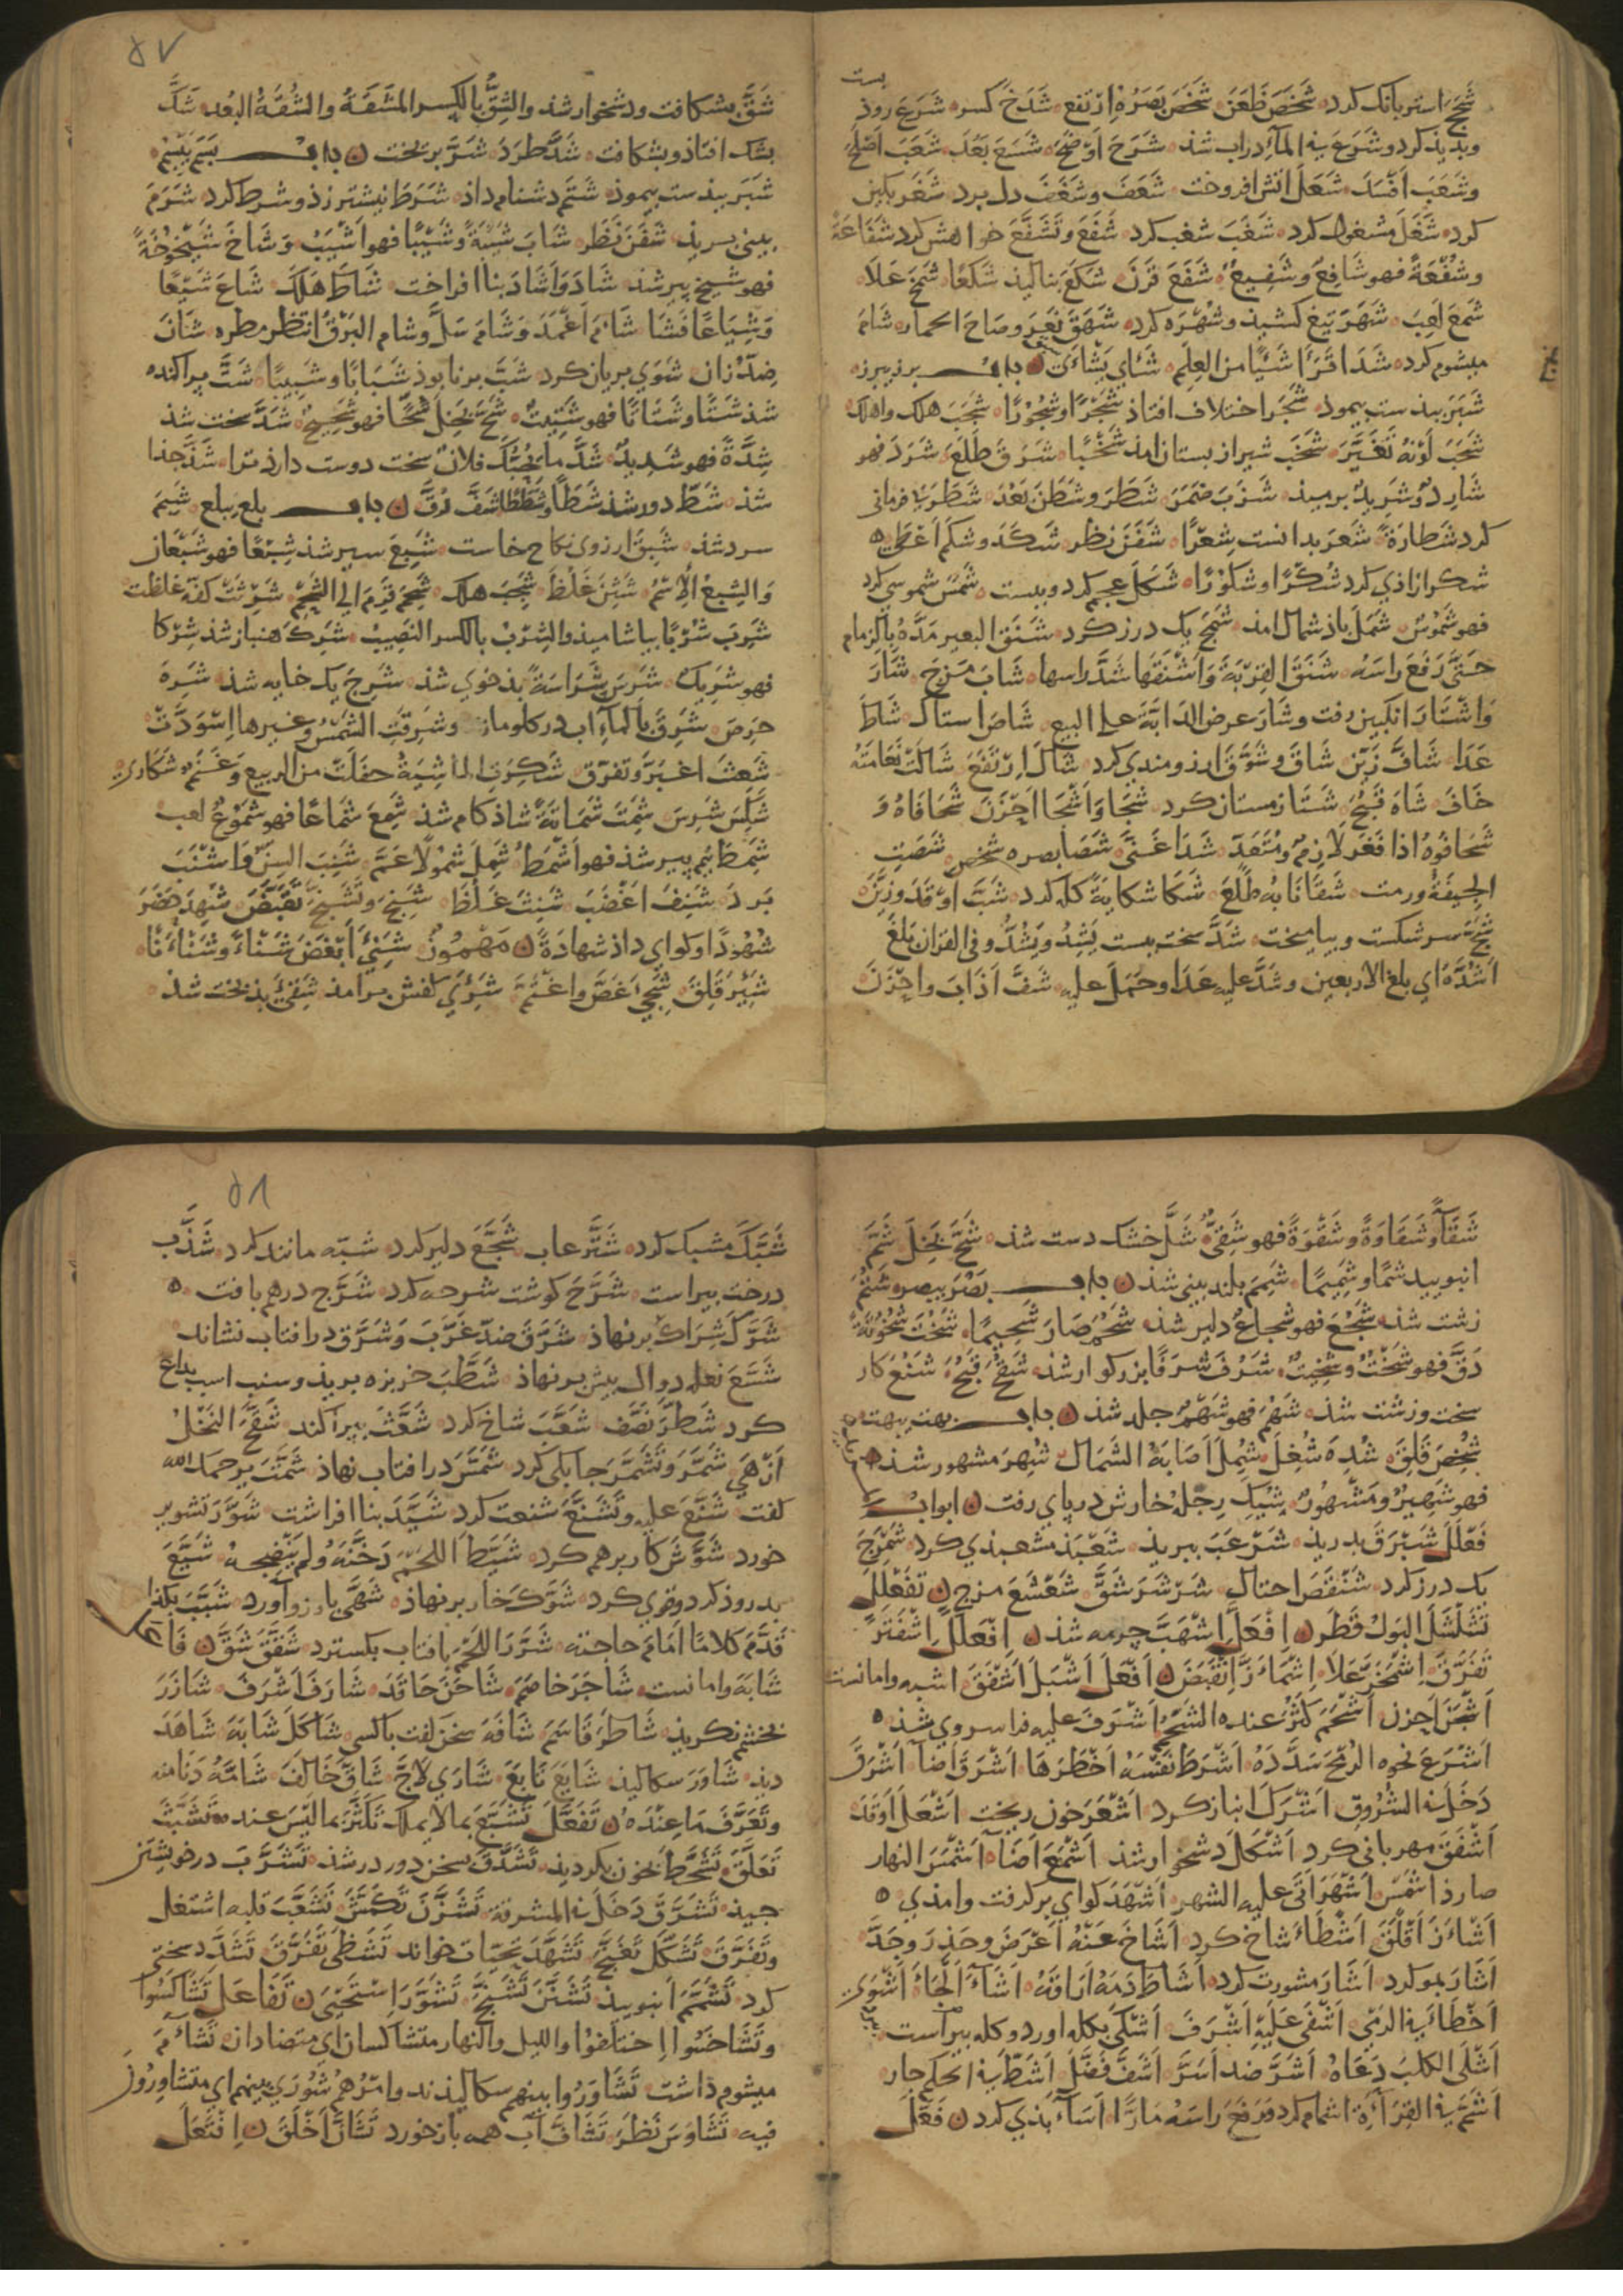 بست
شَحَجَ استر بانك كرد شَخَصَ ظَعَنَ شَخَصَ بَصَرُهُ اِرْتفع شَدَخَ كسر شَرَعَ روذ
وبديذ كرد وشَرَعَ في المآءِ دراب شد شَرَحَ اَوْضَحَ شَسَعَ بَعُدَ شَعَبَ اَصْلَحَ
وشَعَبَ اَفْسَدَ شَعَلَ اتش افروخت شَعَفَ وشَغَفَ دل ببرد شَغَر بكين
كرد شَغَلَ مشغول كرد شَغَبَ شغب كرد شَفَعَ وتَشَفَّعَ خواهش كرد شَفَاعَةً
وشُفْعَةً فهو شَافِعٌ وشَفِيعٌ شَفَعَ قَرَنَ شَكَعَ بناليذ شَكَعًا شَمَخَ عَلَا
شَمَعَ لَعِبَ شَهَرَ تيغ كشيذ وشُهْرَه كرد شَهَقَ نَعَرَ وصَاحَ الحمار شَامَ
ميشوم كرد شَدَا قَرَأَ شَيْئًا من العِلْمِ شَاي يَشْاَي باب برز يبرز
شَبَرَ بدست بيمود شَجَرَ اختلاف افتاذ شَجْرًا وشُجُورًا شَجَبَ هلك واهلك
شَحَبَ لَوْنُهُ تَغَيَّرَ شَخَبَ شير از بستان امذ شَخْبًا شَرَقَ طَلَعَ شَرَدَ فهو
شَارِدٌ وشَرِيدٌ برميذ شَزَبَ ضَمَرَ شَطَرَ وشَطَنَ بَعُدَ شَطَرَ بى فرمانى
كرد شَطارَةً شَعَرَ بدانست شِعْرًا شَفَنَ نظر شَكَدَ وشكم اَعْطَى
شكر ازاذى كرد شُكْرًا وشكُوْرًا شَكَلَ عجم كرد وببست شَمَسَ شموسى كرد
فهو شَمُوسٌ شَمَلَ باذ شمال امذ شَمَجَ بك درز كرد شَنَقَ البعير مَدَّهُ بالزمام
حَتَّى رَفَعَ راسَهُ شَنَقَ القِرْبَةَ وَاَشْنَقَها شَدَّ راسها شَابَ مَزَجَ شَارَ
وَاشْتَارَ انكبين رفت وشَارَ عرض الدابَّةَ على البيع شَاصَ استاك شَاطَ
عَدَا شَافَ زَيَّنَ شَاقَ وشَوَّقَ ارزومندى كرد شَالَ اِرْتَفَعَ شَالَتْ نَعَامَتُهُ
خَافَ شَاهَ قَبُحَ شَتَا زمستان كرد شَجَا وَاَشْجَا اَحْزَنَ شَحَا فَاهُ وَ
شَحَا فُوهُ اذا فَغَر لازمٌ ومُتَعَدٍّ شَدَا غَنَّى شَصَا بصره شخص شَصَتِ
الجِيفَةُ ورمت شَقَا نَابُهُ طَلَعَ شَكَا شكايةً كله كرد شَبَّ اوقَدَ وزَيَّنَ
شَجَّ سر شكست وبياميخت شَدَّ سخت ببست يَشِدُّ ويَشُدُّ وفى القران بَلَغَ
اَشُدَّهُ اى بلغ الاربعين وشَدَّ عليه عَدَا وحَمَلَ عليه شَفَّ اَذابَ واحْزَنَ
٥٧
شَقَّ بشكافت ودشخوار شذ والشِقُّ بالكسر المَشَقَّةُ والشُقَّةُ البُعد شَكَّ
بشك افتاذ وبشكافت شَلَّ طَرَدَ شَنَّ بريخت باب بَسَمَ يَبْسِمُ
شَبَرَ بذست بيموذ شَتَمَ دشنام داذ شَرَطَ نيشتر زذ وشرط كرد شَرَمَ
بينى ببريذ شَفَنَ نَظَر شَابَ شَيْبَةً وشَيْبًا فهو اَشْيَبُ وَشَاخَ شَيْخُوخَةً
فهو شيخ پير شذ شَادَ وَاَشَادَ بنا افراخت شَاطَ هَلَكَ شَاعَ شَيْعًا
وَشِيَاعًا فَشَا شَامَ اَغْمَدَ وَشَامَ سَلَّ وشام البَرْقَ انتظر مطره شَانَ
ضِدّ زان شَوَي بريان كرد شَبَّ برنا بوذ شَبَابًا وشَبِيبًا شَتَّ پراكنده
شذ شَتًّا وشَتَاتًا فهو شَتِيتٌ شَحَّ بَخِلَ شَحًّا فهو شَحِيحٌ شَدَّ سخت شذ
شِدَّةً فهو شَدِيدٌ شَدَّ ما يُحِبُّكَ فلانٌ سخت دوست دارذ ترا شَذَّ جذا
شذ شَطَّ دور شذ شَطًّا وشَطَطًا شَفَّ رَقَّ باب بلع يبلع شَبِمَ
سرد شذ شَبِقَ ارزوى نكاح خاست شَبِعَ سير شذ شِبَعًا فهو شَبْعَان
وَالشِبعُ الاِسْمُ شَثِنَ غَلُظَ شَجِبَ هلك شَحِمَ قَرِمَ الى الشَحْمِ شَرِثَتْ كفّه غلظت
شَرِبَ شُرْبًا بياشاميذ والشِرْبُ بالكسر النَصِيبُ شَرِكَ هنباز شذ شِرْكا
فهو شَرِيك شَرِسَ شَرَاسَةً بذخوى شذ شَرِجَ يك خايه شذ شَرِهَ
حَرِصَ شَرِقَ بالمآءِ اب در كلو ماند وشَرِقَتِ الشَمْسُ وغيرها اِسْوَدَّتْ
شَعِثَ اغبَرَّ وتفرّق شَكِرَتِ الماشِيَةُ حفلَتْ من الربيع وغَنَمٌ شَكَارى
شَكِسَ شَرِسَ شَمِتَ شَمَاتَةً شاذكام شذ شَمِعَ شَمَاعًا فهو شَمُوْعٌ لعب
شَمِطَ نيم پير شذ فهو اَشْمَطُ شَمِلَ شُمُولًا عَمَّ شَنِبَ السِنّ وَاشْنَبَ
بَرَدَ شَنِفَ اَغْضَبَ شَنِثَ غَلُظَ شَنِجَ وتَشَنَّجَ تَقَبَّضَ شَهِدَ حَضَرَ
شُهُودًا وكواى داذ شَهَادَةً مَهْمُوزٌ شَنِئَ اَبْغَضَ شَنْاءً وشَنَاءَنًا
شَئِزَ قَلِقَ شَجِيَ اَغَصَّ وَاغْتَمَّ شَرِيَ كفش برامذ شَقِيَ بذبخت شذ
شَقَآءً وشَقَاوَةً وشَقْوَةً فهو شَقِىٌّ شَلَّ خشك دست شذ شَحَّ بَخِلَ شَمَّ
انبوييد شمًّا وشَمِيمًا شَمِمَ بلند بينى شذ باب بَصُرَ يبصر شَثُمَ
زشت شذ شَجُعَ فهو شجاعٌ دلير شذ شَحُمَ صَارَ شَحِيمًا شَخُتَ شُخُوتَةً
دَقَّ فهو شَخْتٌ وشَخِيتٌ شَرُفَ شَرَفًا بزركوار شذ شَقُحَ قَبُحَ شَنُعَ كار
سخت وزشت شذ شَهُمَ فهو شَهْمٌ جلد شذ باب بهت يبهت
شُخِصَ قَلِقَ شُدِهَ شُغِلَ شُمِلَ اَصَابَهُ الشَمَال شُهِرَ مشهور شذ
فهو شَهِيرٌ ومَشْهُورٌ شِيكَ رِجْلُهُ خار ش در پاى رفت ابواب
فَعْلَلَ شَبْرَقَ بدريذ شَرْعَبَ ببريذ شَعْبَذَ مشعبذى كرد شَمْرَجَ
بك درز كرد شَنْقَصَ احتال شَرْشَرَ شَقَّ شَعْشَعَ مزج تَفَعْلَلَ
تَشَلْشَلَ البَوْلُ قَطَرَ اِفْعَلَّ اِشْهَبَّ چرمه شذ اِفْعَلَلَّ اِشْفَتَرَّ
تَفَرَّقَ اِشْمَخَرَّ عَلَا اِشْمَاَزَّ اِنْقَبَضَ اَفْعَلَ اَشْبَلَ اَشْفَقَ اشبه وامانست
اَشْجَنَ احزن اَشْحَمَ كَثُرَ عنده الشَحْمُ اَشْرَفَ عليه فرا سر وى شذ
اَشْرَعَ نحوه الرُمْحَ سَدَّدَهُ اَشْرَطَ نَفْسَهُ اَخْطَرَهَا اَشْرَقَ اَضآءَ اَشْرَقَ
دَخَلَ فى الشُرُوقِ اَشْرَكَ انباز كرد اَشْعَرَ خون ريخت اَشْعَلَ اَوْقَدَ
اَشْفَقَ مهربانى كرد اَشْكَلَ دشخوار شذ اَشْمَعَ اَضَآءَ اَشْمَسَ النهار
صار ذا شَمْسٍ اَشْهَرَ اَتَى عليه الشهر اَشْهَدَ كواى بر كرفت وامذى
اَشْاَزَ اَقْلَقَ اَشْطَاَ شاخ كرد اَشَاحَ عَنْهُ اَعْرَضَ وحَذِرَ وجَدَّ
اَشَارَ بمو كرد اَشَارَ مشورت كرد اَشَاطَ دَمَهُ اَرَاقَهُ اَشَآءَ اَلْجَاَ اَشْوَى
اَخْطَا فى الرَمْىِ اَشْفَى عَلَيْهِ اَشْرَفَ اَشْكَى بكله اورد وكله بيراست
اَشْلَى الكلبَ دَعَاهُ اَشَرَّ ضد اَسَرَّ اَشَفَّ فَضَّلَ اَشَطَّ فى الحكم جار
اَشَمَّ فى القِرَآءَةِ اشمام كرد ورَفَعَ راسَهُ مَارًّا اَسَآءَ بذى كرد فَعَّلَ
٥٨
شَبَّكَ مشبك كرد شَتَّرَ عاب شَجَّعَ دلير كرد شبّه مانند كرد شَذَّبَ
درخت بيراست شَرَّحَ كوشت شرحه كرد شَرَّجَ درهم بافت
شَرَّكَ شِرَاك برنهاذ شَرَّقَ ضدّ غَرَّبَ وَشَرَّق در افتاب نشاند
شَسَّعَ نعله دوال پيش برنهاذ شَطَّبَ خربزه بريذ وسنب اسب بداغ
كرد شَطَّرَ نَصَّفَ شَعَّبَ شاخ كرد شَعَّثَ بپراكند شَقَّحَ النَخْلُ
اَزْهَى شَمَّرَ وتَشَمَّرَ چابكى كرد شَمَّسَ در افتاب نهاذ شَمَّتَ يرحمك الله
كفت شَنَّعَ عليه وتَشَنَّعَ شنعت كرد شَيَّدَ بنا افراشت شَوَّرَ تشوير
خورد شَوَّشَ كار برهم كرد شَيَّطَ اللحْمَ دَخَّنَهُ ولم يُنْضِجْهُ شَيَّعَ
بدروذ كرد وقوى كرد شَوَّكَ خار برنهاذ شَهَّى بارزو آورد شَبَّبَ بكذا
قَدَّمَ كلامًا اَمَامَ حاجته شَرَّرَ اللَحْمَ بافتاب بكسترد شَقَّقَ شَقَّ فَا
شَابَهَ وامانست شَاجَرَ خاصَمَ شَاحَنَ حَاقَدَ شارَفَ اَشْرَفَ شَازَرَ
بخشم نكريذ شَاطَرَ قَاسَمَ شَافَهَ سخن كفت باكسى شَاكَلَ شَابَهَ شَاهَدَ
ديذ شَاوَرَ سكاليذ شَايَعَ تَابَعَ شَارَى لَاجَّ شَاقَّ خَالَفَ شَامَّهُ دَنَا منه
وتَعَرَّفَ مَا عِنْدَهُ تَفَعَّلَ تَشَبَّعَ بما لا يملك تَكَثَّرَ بما ليس عنده تَشَبَّثَ
تَعَلَّقَ تَشَحَّطَ بخون بكرديذ تَشَدَّقَ بسخن دور در شذ تَشَرَّبَ در خويشتن
چيذ تَشَرَّقَ دَخَلَ فى المشرقة تَشَزَّنَ تَكَمَّشَ تَشَعَّبَ قلبه اشتغل
وتَفَرَّقَ تَشَكَّلَ تَغَنَّجَ تَشَهَّدَ تَحيّات خواند تَشَظَّى تَفَرَّقَ تَشَدَّدَ سختى
كرد تَشَمَّمَ انبوييذ تَشَنَّنَ تَشَنَّجَ تَشَوَّرَ اِسْتَحْيَى تَفَاعَلَ تَشَاكَسُوا
وتَشَاخَسُوا اِختلَفُوا والليل والنهار متشاكسان اى متضادان تَشَآءَمَ
ميشوم داشت تَشَاوَرُوا بينهم سكاليذند وامْرُهُمْ شُورَى بينهم اى متشاورُونَ
فيه تَشَاوَسَ نَظَرَ تَشَافَّ آب همه باز خورد تَشَانَّ اَخْلَقَ اِفْتَعَلَ